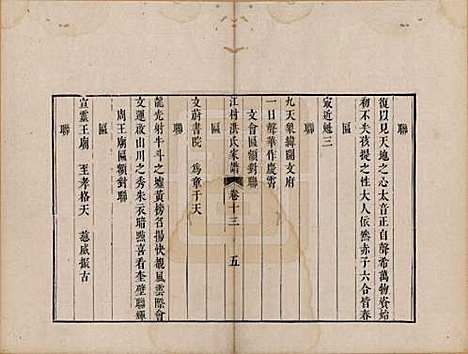 聯
復以見天地之心太音正自聲希萬物資始
初不失孩提之性大人依然赤子六合皆春
區
寂近魁三
聯
九天象緯開文府
一日聲華作慶霄
文會區額對聯
江村洪氏家譜 卷十三 五
文蔚書院 為章于天
聯
龍光射牛斗之墟黃榜名揚快覩風雲際會
文運啟山川之秀朱衣暗點喜看奎壁聯輝
廟王廟區額對聯
區
宣靈王廟 至孝格天 慈威振古
聯